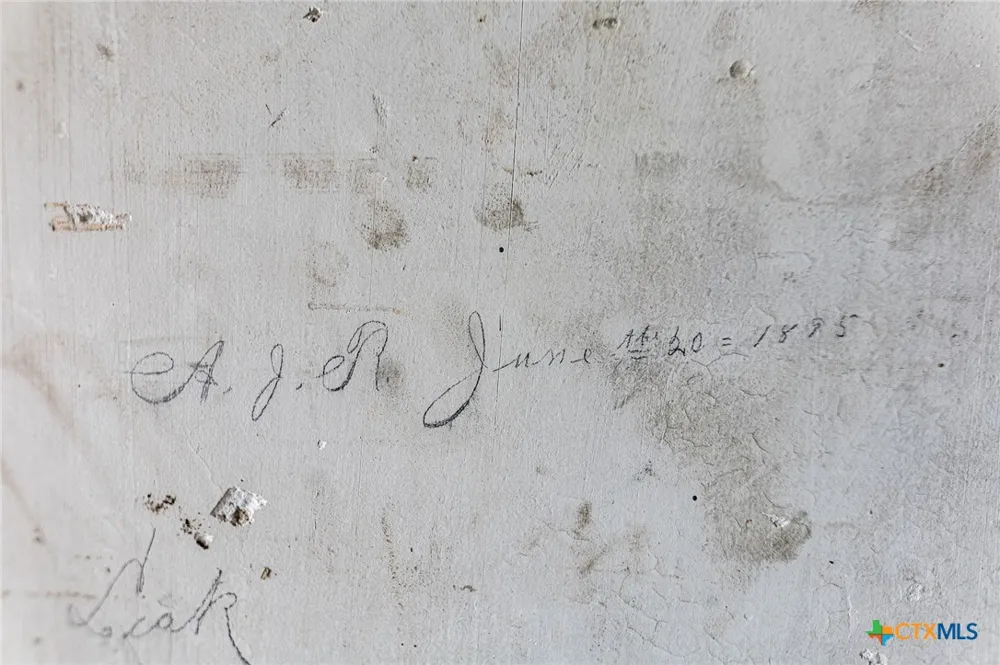 A. J. R. June the 20 = 1895
Leak
CTXMLS